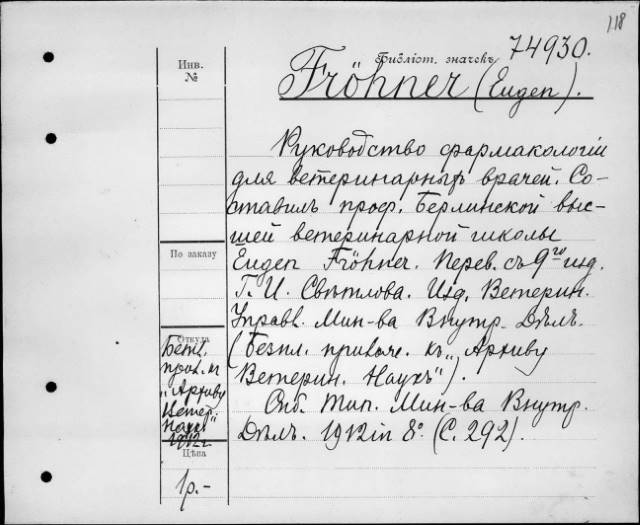 118
Библіот. значекъ 74930.
Инв.
№
Fröhner (Eugen).
Руководство фармакологіи
для ветеринарныхъ врачей. Со-
ставилъ проф. Берлинской выс-
шей ветеринарной школы
По заказу
Eugen Fröhner. Перев. съ 9го изд.
Г. И. Свѣтлова. Изд. Ветерин.
Управл. Мин-ва Внутр. Дѣлъ.
(Безпл. прилож. къ „Архиву
Ветерин. Наукъ").
Спб. Тип. Мин-ва Внутр.
Дѣлъ. 1912 in 8º (С. 292).
Откуда
прил. къ
„Архиву
Ветер.
Наукъ"
1912 г.
Цѣна
1 р. -